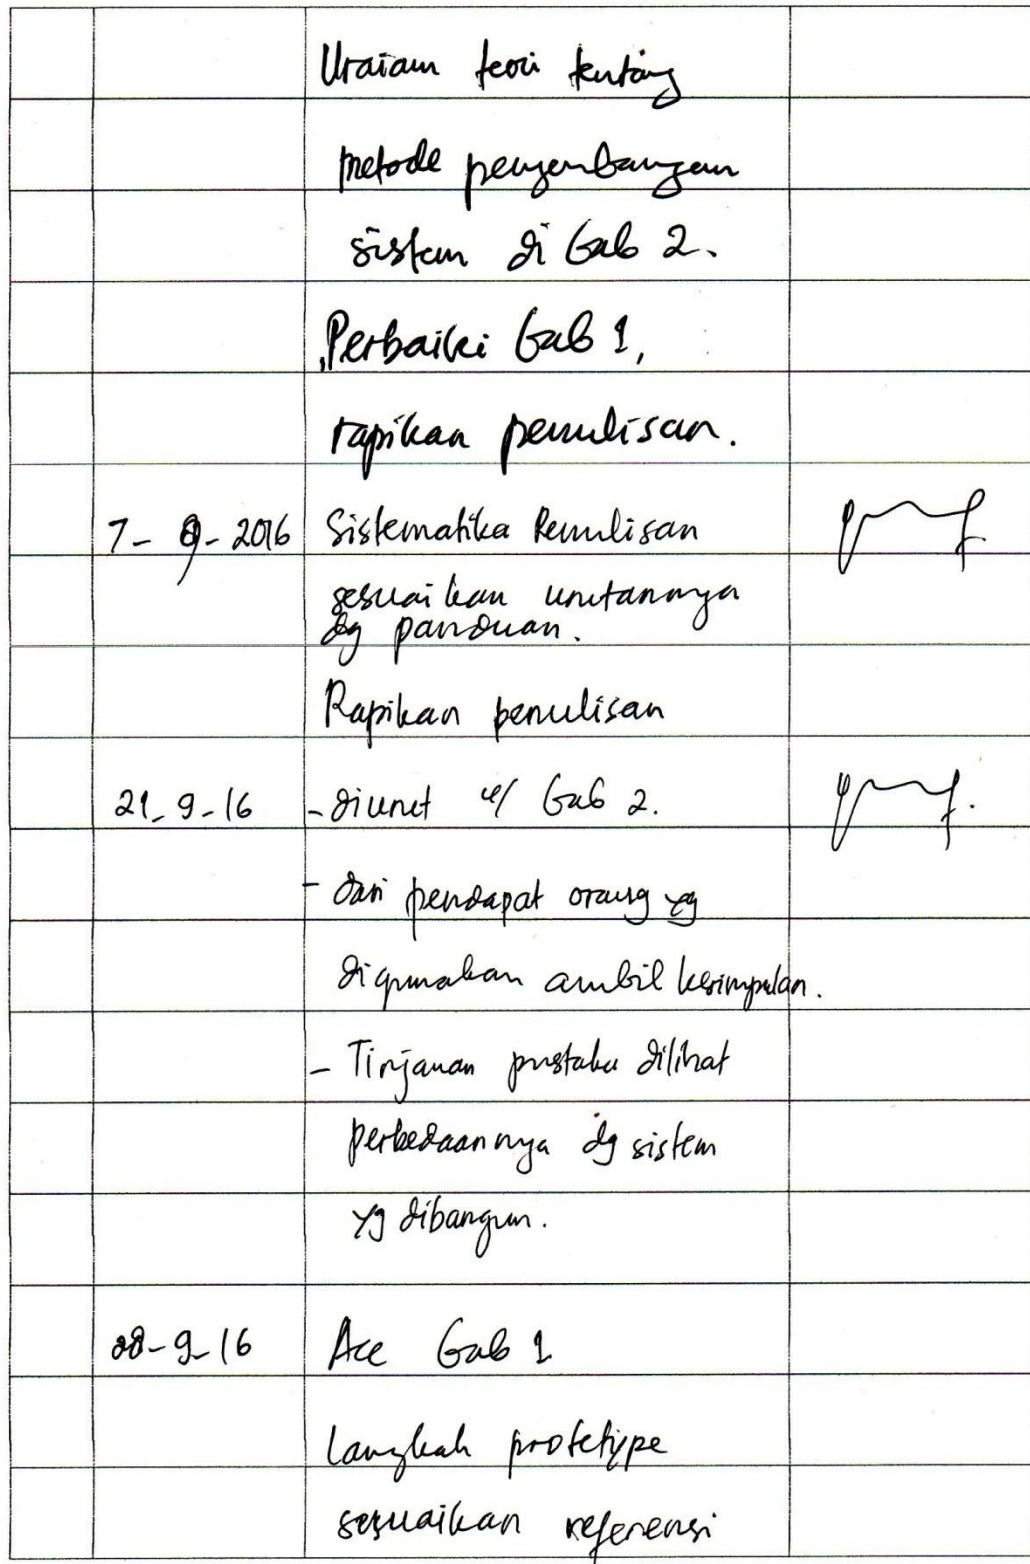 Uraian teori tentang
metode pengembangan
sistem di bab 2.
Perbaiki bab 1,
rapikan penulisan.
7-9-2016 Sistematika Penulisan
sesuaikan urutannya
dg panduan.
Rapikan penulisan
21-9-16 - diurut u/ bab 2.
- dari pendapat orang yg
digunakan ambil kesimpulan.
- Tinjauan pustaka dilihat
perbedaannya dg sistem
yg dibangun.
28-9-16 Acc bab 1
Langkah prototype
sesuaikan referensi